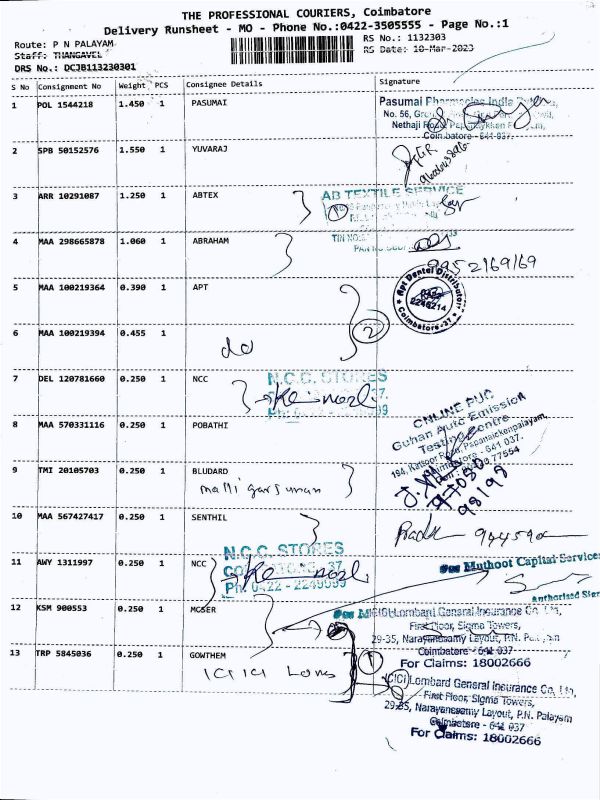 THE PROFESSIONAL COURIERS, Coimbatore
Delivery Runsheet - MO - Phone No.:0422-3505555 - Page No.:1
Route: P N PALAYAM
RS No.: 1132303
Staff: THANGAVEL
RS Date: 10-Mar-2023
DRS No.: DCJB113230301
S No Consignment No Weight PCS Consignee Details Signature
1 POL 1544218 1.450 1 PASUMAI
Pasumai Pharmacies India
No. 56,
Nethaji Road
Coimbatore - 641 037.
2 SPB 50152576 1.550 1 YUVARAJ
3 ARR 10291087 1.250 1 ABTEX
AB TEXTILE SERVICE
4 MAA 298665878 1.060 1 ABRAHAM
9952169169
5 MAA 100219364 0.390 1 APT
Apt Dental Distributors
0422
2246214
Coimbatore-37
2
6 MAA 100219394 0.455 1
do
7 DEL 120781660 0.250 1 NCC
N.C.C. STORES
8 MAA 570331116 0.250 1 POBATHI
ONLINE PUC
Guhan Auto Emission
Testing Centre
194, Rattoor Road, Papanaickenpalayam,
Coimbatore - 641 037.
77554
9 TMI 20105703 0.250 1 BLUDARD
97080
98198
10 MAA 567427417 0.250 1 SENTHIL
N.C.C. STORES
37.
Ph: 0422 - 2249599
11 AWY 1311997 0.250 1 NCC
For Muthoot Capital Services
Authorised Sign
12 KSM 900553 0.250 1 MCSER
ICICI Lombard General Insurance Co. Ltd.,
First Floor, Sigma Towers,
29-35, Narayanasamy Layout, P.N. Palayam
Coimbatore - 641 037
For Claims: 18002666
13 TRP 5845036 0.250 1 GOWTHEM
ICICI Lom
1
ICICI Lombard General Insurance Co. Ltd.,
First Floor, Sigma Towers,
29-35, Narayanasamy Layout, P.N. Palayam
Coimbatore - 641 037
For Claims: 18002666